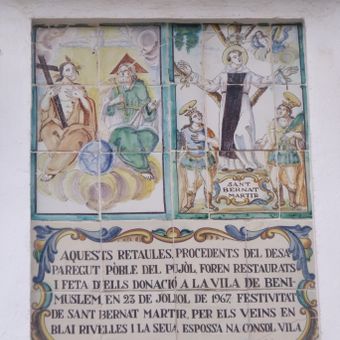 SANT
BERNAT
MARTIR
AQUESTS RETAULES, PROCEDENTS DEL DESA
PAREGUT PÒBLE DEL PUJÒL FOREN RESTAURATS
I FETA D'ELLS DONACIÓ A LA VILA DE BENI-
MUSLEM, EN 23 DE JULIOL DE 1967, FESTIVITAT
DE SANT BERNAT MARTIR, PER ELS VEINS EN
BLAI RIVELLES I LA SEUA ESPOSSA NA CONSOL VILA